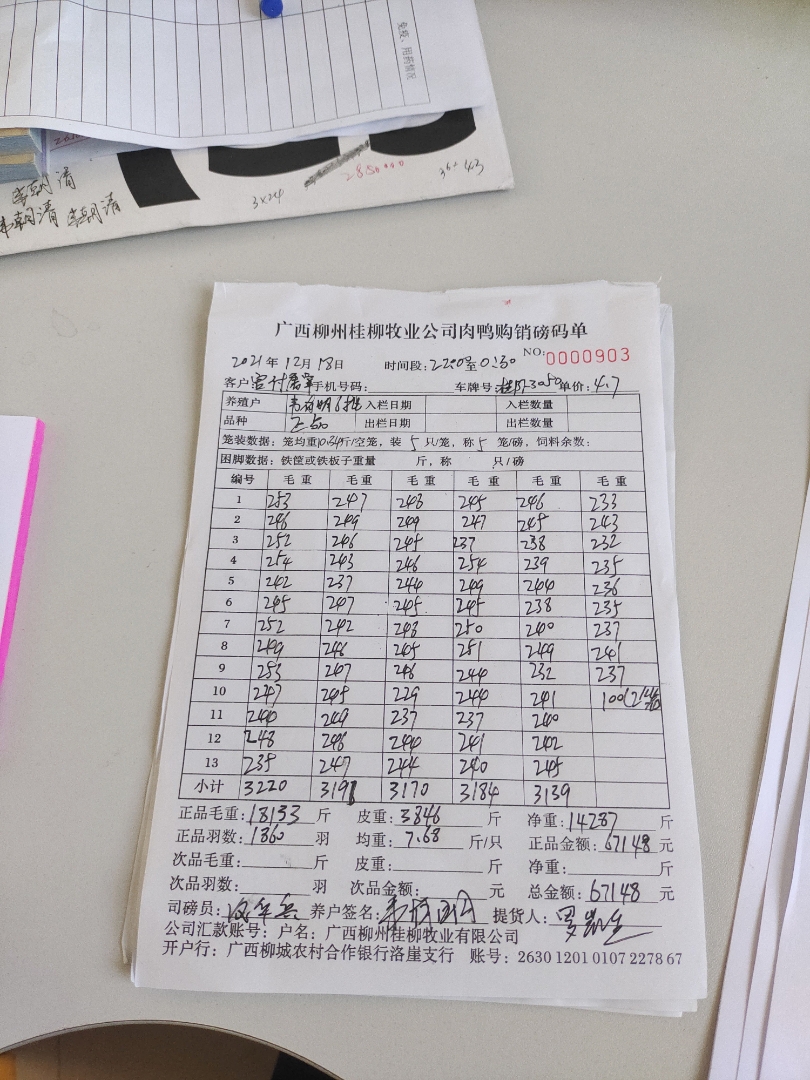 免疫、用药情况
285
3×24
36× 43
李朝清
韦朝清 李朝清
广西柳州桂柳牧业公司肉鸭购销磅码单
NO: 0000903
2021年12月18日 时间段: 2200至0:30
客户 手机号码: 车牌号: 单价: 4.7
养殖户 入栏日期 入栏数量
品种 正品 出栏日期 出栏数量
笼装数据: 笼均重10.34斤/空笼, 装 5 只/笼, 称 5 笼/磅, 饲料余数:
困脚数据: 铁筐或铁板子重量 斤, 称 只/磅
编号 毛重 毛重 毛重 毛重 毛重 毛重
1 253 247 243 245 246 233
2 246 249 249 247 245 243
3 252 246 245 237 238 232
4 254 243 246 254 239 235
5 242 237 244 249 244 236
6 245 247 245 245 238 235
7 252 242 243 250 240 237
8 249 246 245 251 249 241
9 253 247 246 244 232 237
10 247 245 229 244 241 100
11 240 249 237 237 240
12 248 246 240 241 242
13 239 247 244 240 245
小计 3220 3191 3170 3184 3139
正品毛重: 18133 斤 皮重: 3846 斤 净重: 14287 斤
正品羽数: 1860 羽 均重: 7.68 斤/只 正品金额: 67148 元
次品毛重: 斤 皮重: 斤 净重: 斤
次品羽数: 羽 次品金额: 元 总金额: 67148 元
司磅员: 养户签名: 提货人:
公司汇款账号: 户名: 广西柳州桂柳牧业有限公司
开户行: 广西柳城农村合作银行洛崖支行 账号: 2630 1201 0107 2278 67